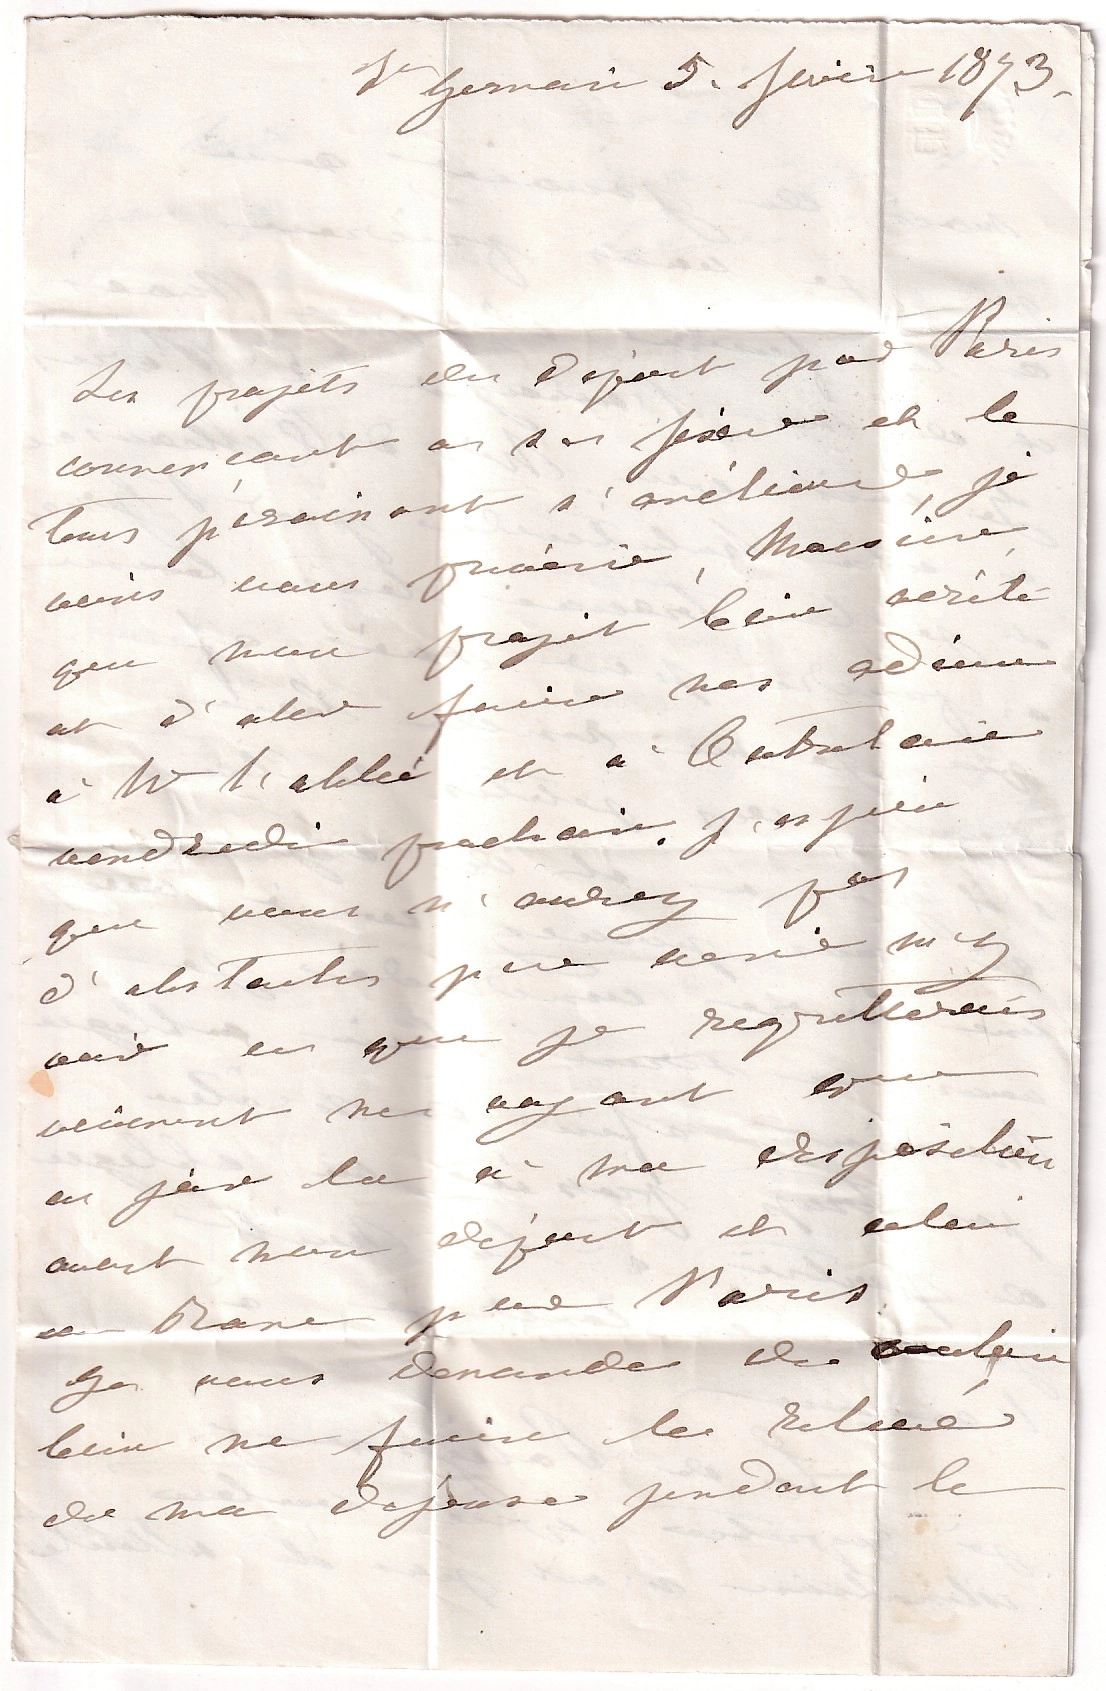 St Germain 5. février 1873.
Les projets de départ pour Paris
commençant à se et le
tems paraissant s'améliorer, je
viens vous Monsieur,
que mon projet bien arrêté
est d'aler faire mes adieux
à Mr l'abbé et à
vendredi prochain. j'espère
que vous n'aurez pas
d'obstacles pour venir m'y
voir ce que je regretterais
vivement ne ayant que
ce jour la à ma disposition
avant mon départ et celui
de pour Paris
Je vous demande de vouloir
bien me faire le relevé
de ma dépense pendant le